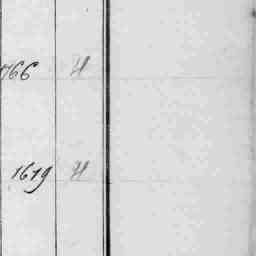 1766 H
1619 H